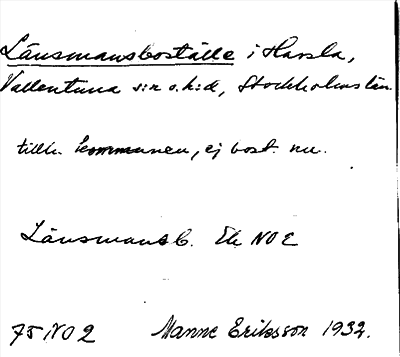 Länsmansboställe i Harsla,
Vallentuna s:n o. h:d, Stockholms län.
tillh. kommunen, ej bost. nu.
Länsmansb. Ek NO E
75 NO 2 Manne Eriksson 1932.